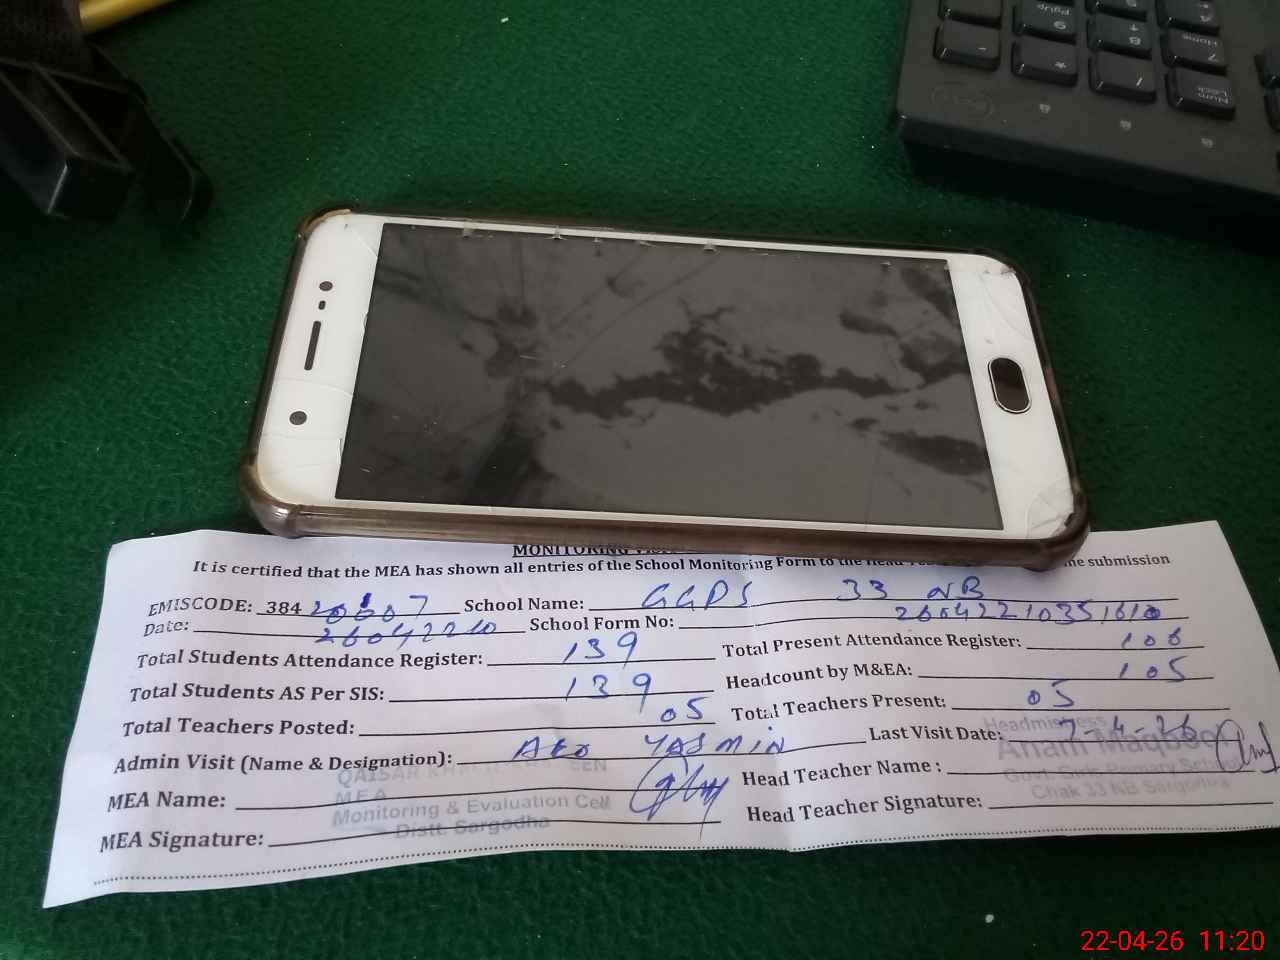 MONITORING
It is certified that the MEA has shown all entries of the School Monitoring Form to the submission
EMISCODE: 384 School Name: GGPS 33 NB
Date: 26042210 School Form No:
Total Students Attendance Register: 139 Total Present Attendance Register: 106
Total Students AS Per SIS: 139 Headcount by M&EA: 105
Total Teachers Posted: 05 Total Teachers Present: 05
Admin Visit (Name & Designation): AEO YASMIN Last Visit Date: 7-4-26
MEA Name: QAISAR Head Teacher Name: Headmistress
MEA Anam Maqbool
Monitoring & Evaluation Cell Govt. Girls Primary School
Distt. Sargodha Chak 33 NB Sargodha
MEA Signature: Head Teacher Signature:
PgUp
9
8
Home
7
*
/
Num
Lock
22-04-26 11:20